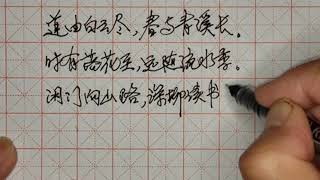 道由白云尽，春与青溪长。
时有落花至，远随流水香。
闲门向山路，深柳读书